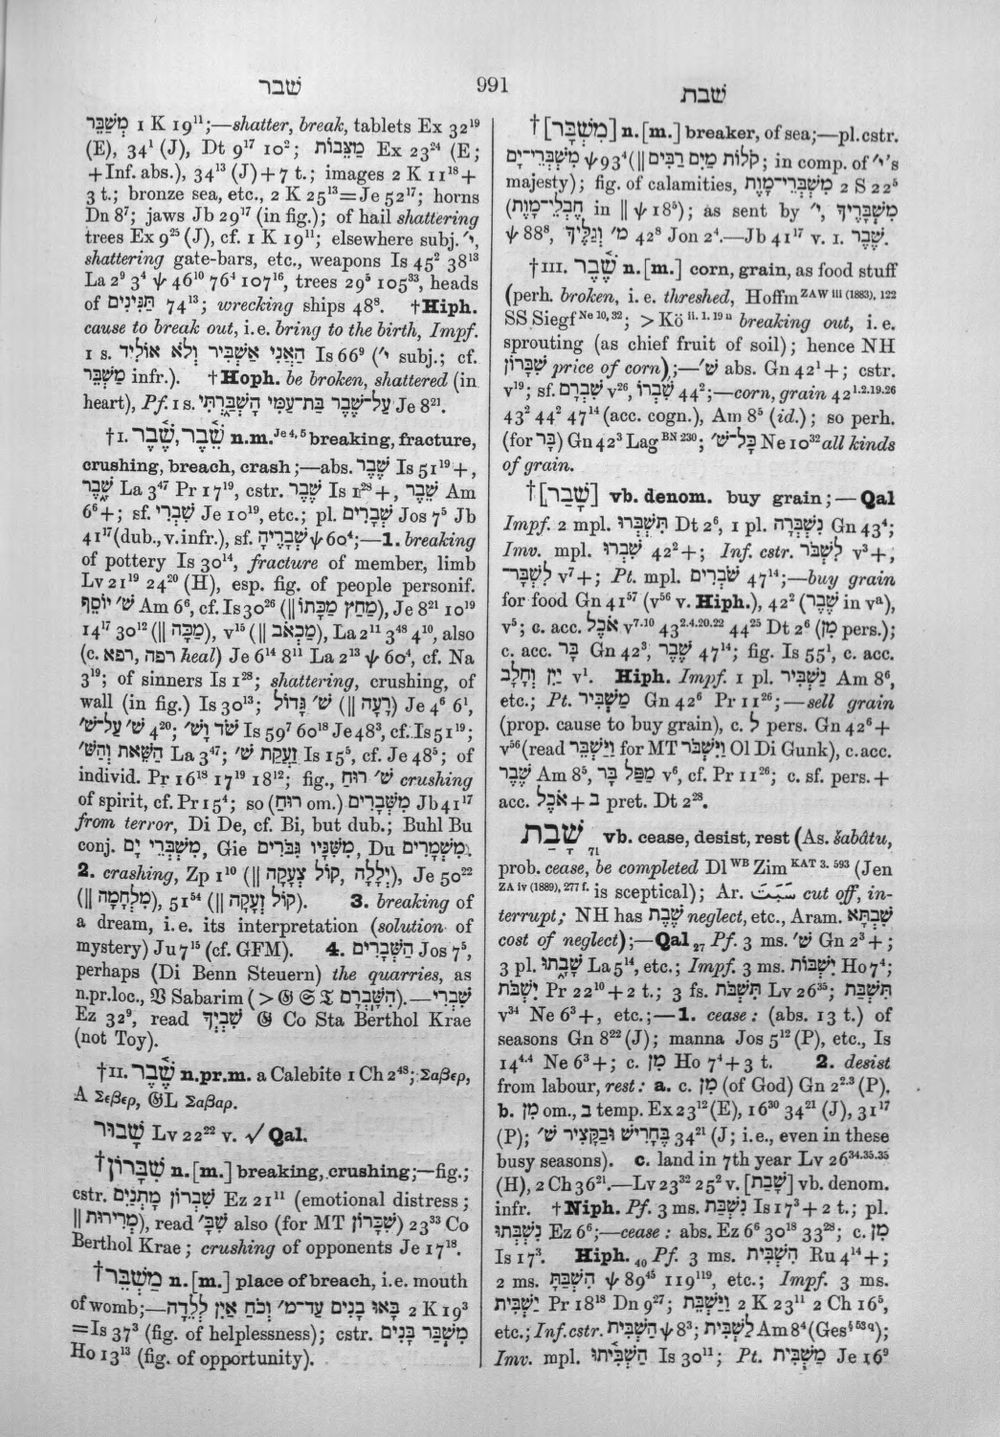 שבר
991
שבת
מְשַׁבֵּר 1 K 19¹¹;—shatter, break, tablets Ex 32¹⁹
(E), 34¹ (J), Dt 9¹⁷ 10²; מַצֵּבוֹת Ex 23²⁴ (E;
+ Inf. abs.), 34¹³ (J) + 7 t.; images 2 K 11¹⁸ +
3 t.; bronze sea, etc., 2 K 25¹³ = Je 52¹⁷; horns
Dn 8⁷; jaws Jb 29¹⁷ (in fig.); of hail shattering
trees Ex 9²⁵ (J), cf. 1 K 19¹¹; elsewhere subj. י׳,
shattering gate-bars, etc., weapons Is 45² 38¹³
La 2⁹ 3⁴ ψ 46¹⁰ 76⁴ 107¹⁶, trees 29⁵ 105³³, heads
of תַּנִּינִים 74¹³; wrecking ships 48⁸. †Hiph.
cause to break out, i.e. bring to the birth, Impf.
1 s. הַאֲנִי אַשְׁבִּיר וְלֹא אוֹלִיד Is 66⁹ (י׳ subj.; cf.
מַשְׁבֵּר infr.). †Hoph. be broken, shattered (in
heart), Pf. 1 s. עַל־שֶׁבֶר בַּת־עַמִּי הָשְׁבָּרְתִּי Je 8²¹.
†I. שֶׁבֶר, שֵׁבֶר n.m. Je 4, 6 breaking, fracture,
crushing, breach, crash;—abs. שֶׁבֶר Is 51¹⁹ +,
שָׁבֶר La 3⁴⁷ Pr 17¹⁹, cstr. שֶׁבֶר Is 1²⁸ +, שֵׁבֶר Am
6⁶ +; sf. שִׁבְרִי Je 10¹⁹, etc.; pl. שְׁבָרִים Jos 7⁵ Jb
41¹⁷ (dub., v. infr.), sf. שְׁבָרֶיהָ ψ 60⁴;—1. breaking
of pottery Is 30¹⁴, fracture of member, limb
Lv 21¹⁹ 24²⁰ (H), esp. fig. of people personif.
שׁ׳ יוֹסֵף Am 6⁶, cf. Is 30²⁶ (|| מַחַץ מַכָּתוֹ), Je 8²¹ 10¹⁹
14¹⁷ 30¹² (|| מַכָּה), v¹⁵ (|| מַכְאֹב), La 2¹¹ 3⁴⁸ 4¹⁰, also
(c. רפא, רפה heal) Je 6¹⁴ 8¹¹ La 2¹³ ψ 60⁴, cf. Na
3¹⁹; of sinners Is 1²⁸; shattering, crushing, of
wall (in fig.) Is 30¹³; שׁ׳ גָּדוֹל (|| רָעָה) Je 4⁶ 6¹,
שׁ׳ עַל־שׁ׳ 4²⁰; שֹׁד וָשׁ׳ Is 59⁷ 60¹⁸ Je 48³, cf. Is 51¹⁹;
הַשֵּׁאת וְהַשּׁ׳ La 3⁴⁷; זַעֲקַת שׁ׳ Is 15⁵, cf. Je 48⁵; of
individ. Pr 16¹⁸ 17¹⁹ 18¹²; fig., שׁ׳ רוּחַ crushing
of spirit, cf. Pr 15⁴; so (רוּחַ om.) מִשְּׁבָרִים Jb 41¹⁷
from terror, Di De, cf. Bi, but dub.; Buhl Bu
conj. מִשְׁבְּרֵי יָם, Gie מִשָּׁנָיו גִּבֹּרִים, Du מִשְׁמָרִים.
2. crashing, Zp 1¹⁰ (|| יְלָלָה, קוֹל צְעָקָה), Je 50²²
(|| מִלְחָמָה), 51⁵⁴ (|| קוֹל זְעָקָה). 3. breaking of
a dream, i.e. its interpretation (solution of
mystery) Ju 7¹⁵ (cf. GFM). 4. הַשְּׁבָרִים Jos 7⁵,
perhaps (Di Benn Steuern) the quarries, as
n.pr.loc., 𝔙 Sabarim (> 𝔊 𝔖 𝔗 הִשָּׁבְרָם).—שִׁבְרִי
Ez 32⁹, read שִׁבְיְךָ 𝔊 Co Sta Berthol Krae
(not Toy).
†II. שֶׁבֶר n.pr.m. a Calebite 1 Ch 2⁴⁸; Σαβερ,
A Σεβερ, 𝔊L Σαβαρ.
שָׁבוּר Lv 22²² v. √ Qal.
†שִׁבָּרוֹן n.[m.] breaking, crushing;—fig.;
cstr. שִׁבְרוֹן מָתְנַיִם Ez 21¹¹ (emotional distress;
|| מְרִירוּת), read שִׁבָּ׳ also (for MT שִׁכָּרוֹן) 23³³ Co
Berthol Krae; crushing of opponents Je 17¹⁸.
†מַשְׁבֵּר n.[m.] place of breach, i.e. mouth
of womb;—בָּאוּ בָנִים עַד־מ׳ וְכֹחַ אַיִן לְלֵדָה 2 K 19³
= Is 37³ (fig. of helplessness); cstr. מִשְׁבַּר בָּנִים
Ho 13¹³ (fig. of opportunity).
†[מִשְׁבָּר] n.[m.] breaker, of sea;—pl. cstr.
מִשְׁבְּרֵי־יָם ψ 93⁴ (|| קֹלוֹת מַיִם רַבִּים; in comp. of י׳'s
majesty); fig. of calamities, מִשְׁבְּרֵי־מָוֶת 2 S 22⁵
(חֶבְלֵי־מָוֶת in || ψ 18⁵); as sent by י׳, מִשְׁבָּרֶיךָ
ψ 88⁸, מ׳ וְגַלֶּיךָ 42⁸ Jon 2⁴.—Jb 41¹⁷ v. I. שֶׁבֶר.
†III. שֶׁבֶר n.[m.] corn, grain, as food stuff
(perh. broken, i.e. threshed, Hoffm ZAW iii (1883), 122
SS Siegf Ne 10, 32; > Kö ii. 1. 19 n breaking out, i.e.
sprouting (as chief fruit of soil); hence NH
שִׁבָּרוֹן price of corn);—שׁ׳ abs. Gn 42¹ +; cstr.
v¹⁹; sf. שִׁבְרָם v²⁶, שִׁבְרוֹ 44²;—corn, grain 42 1.2.19.26
43² 44² 47¹⁴ (acc. cogn.), Am 8⁵ (id.); so perh.
(for בָּר) Gn 42³ Lag BN 230; כָּל־שׁ׳ Ne 10³² all kinds
of grain.
†[שָׁבַר] vb. denom. buy grain;—Qal
Impf. 2 mpl. תִּשְׁבְּרוּ Dt 2⁶, 1 pl. נִשְׁבְּרָה Gn 43⁴;
Imv. mpl. שִׁבְרוּ 42² +; Inf. cstr. לִשְׁבֹּר v³ +,
לִשְׁבָּר־ v⁷ +; Pt. mpl. שֹׁבְרִים 47¹⁴;—buy grain
for food Gn 41⁵⁷ (v⁵⁶ v. Hiph.), 42² (שֶׁבֶר in vᵃ),
v⁵; c. acc. אֹכֶל v⁷·¹⁰ 43²·⁴·²⁰·²² 44²⁵ Dt 2⁶ (מִן pers.);
c. acc. בָּר Gn 42³, שֶׁבֶר 47¹⁴; fig. Is 55¹, c. acc.
יַיִן וְחָלָב v¹. Hiph. Impf. 1 pl. נַשְׁבִּיר Am 8⁶,
etc.; Pt. מַשְׁבִּיר Gn 42⁶ Pr 11²⁶;—sell grain
(prop. cause to buy grain), c. לְ pers. Gn 42⁶ +
v⁵⁶ (read וַיַּשְׁבֵּר for MT וַיִּשְׁבֹּר Ol Di Gunk), c. acc.
שֶׁבֶר Am 8⁵, מַפַּל בָּר v⁶, cf. Pr 11²⁶; c. sf. pers. +
acc. אֹכֶל + בְּ pret. Dt 2²⁸.
שָׁבַת 71 vb. cease, desist, rest (As. šabâtu,
prob. cease, be completed Dl WB Zim KAT 3. 593 (Jen
ZA iv (1889), 277 f. is sceptical); Ar. سَبَتَ cut off, in-
terrupt; NH has שֶׁבֶת neglect, etc., Aram. שְׁבָתָּא
cost of neglect);—Qal 27 Pf. 3 ms. שׁ׳ Gn 2³ +;
3 pl. שָׁבָתוּ La 5¹⁴, etc.; Impf. 3 ms. יִשְׁבּוֹת Ho 7⁴;
יִשְׁבֹּת Pr 22¹⁰ + 2 t.; 3 fs. תִּשְׁבֹּת Lv 26³⁵; תִּשְׁבַּת
v³⁴ Ne 6³ +, etc.;—1. cease: (abs. 13 t.) of
seasons Gn 8²² (J); manna Jos 5¹² (P), etc., Is
14⁴·⁴ Ne 6³ +; c. מִן Ho 7⁴ + 3 t. 2. desist
from labour, rest: a. c. מִן (of God) Gn 2²·³ (P).
b. מִן om., בְּ temp. Ex 23¹² (E), 16³⁰ 34²¹ (J), 31¹⁷
(P); בֶּחָרִישׁ וּבַקָּצִיר שׁ׳ 34²¹ (J; i.e., even in these
busy seasons). c. land in 7th year Lv 26³⁴·³⁵·³⁵
(H), 2 Ch 36²¹.—Lv 23³² 25² v. [שָׁבַת] vb. denom.
infr. †Niph. Pf. 3 ms. נִשְׁבַּת Is 17³ + 2 t.; pl.
נִשְׁבְּתוּ Ez 6⁶;—cease: abs. Ez 6⁶ 30¹⁸ 33²⁸; c. מִן
Is 17³. Hiph. 40 Pf. 3 ms. הִשְׁבִּית Ru 4¹⁴ +;
2 ms. הִשְׁבַּתָּ ψ 89⁴⁵ 119¹¹⁹, etc.; Impf. 3 ms.
יַשְׁבִּית Pr 18¹⁸ Dn 9²⁷; וַיַּשְׁבֵּת 2 K 23¹¹ 2 Ch 16⁵,
etc.; Inf. cstr. הַשְׁבִּית ψ 8³; לַשְׁבִּית Am 8⁴ (Ges § 53 q);
Imv. mpl. הַשְׁבִּיתוּ Is 30¹¹; Pt. מַשְׁבִּית Je 16⁹